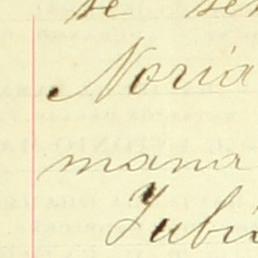 se se
Noria
mana
Jubi